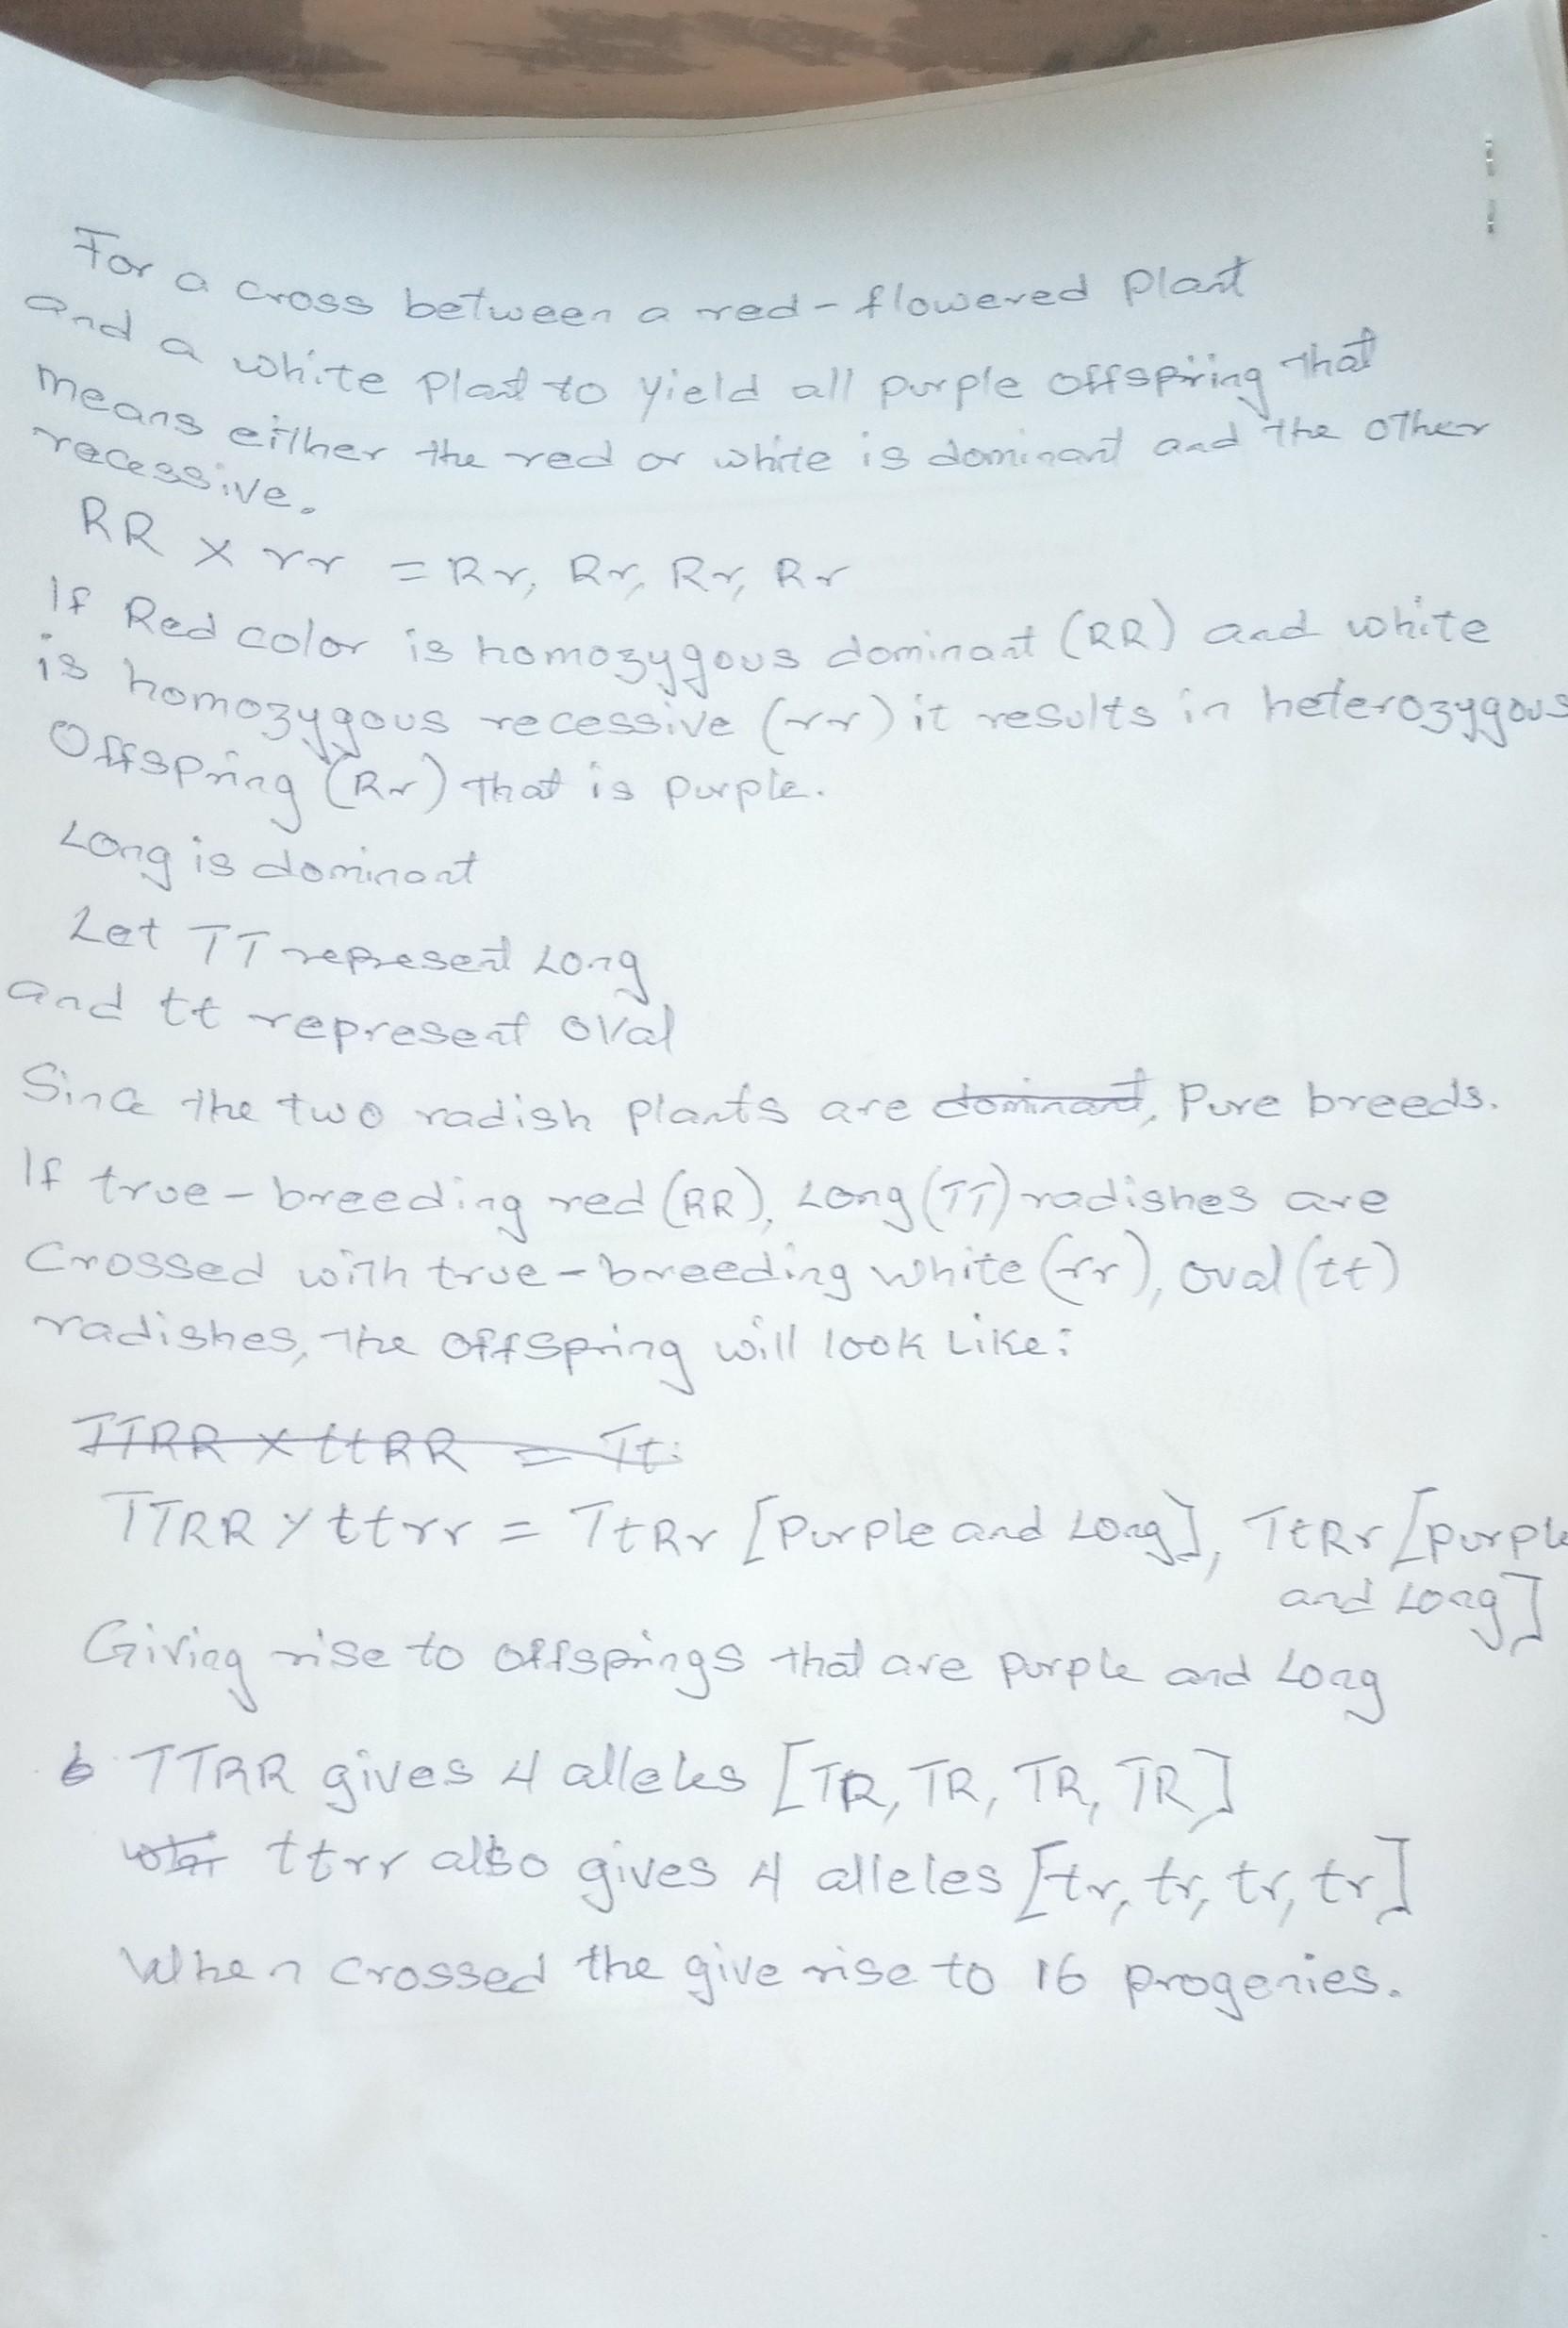 For a cross between a red-flowered plant
and a white plant to yield all purple offspring that
means either the red or white is dominant and the other
recessive.
RR x rr = Rr, Rr, Rr, Rr
If Red color is homozygous dominant (RR) and white
is homozygous recessive (rr) it results in heterozygous
Offspring (Rr) that is purple.
Long is dominant
Let TT represent Long
and tt represent oval
Since the two radish plants are dominant, Pure breeds.
If true-breeding red (RR), Long (TT) radishes are
Crossed with true-breeding white (rr), oval (tt)
radishes, the offspring will look like:
TTRR x ttRR = Tt
TTRR x ttrr = TtRr [Purple and Long], TtRr [purple
and Long]
Giving rise to offsprings that are purple and Long
b TTRR gives 4 alleles [TR, TR, TR, TR]
ttrr also gives 4 alleles [tr, tr, tr, tr]
When crossed the give rise to 16 progenies.